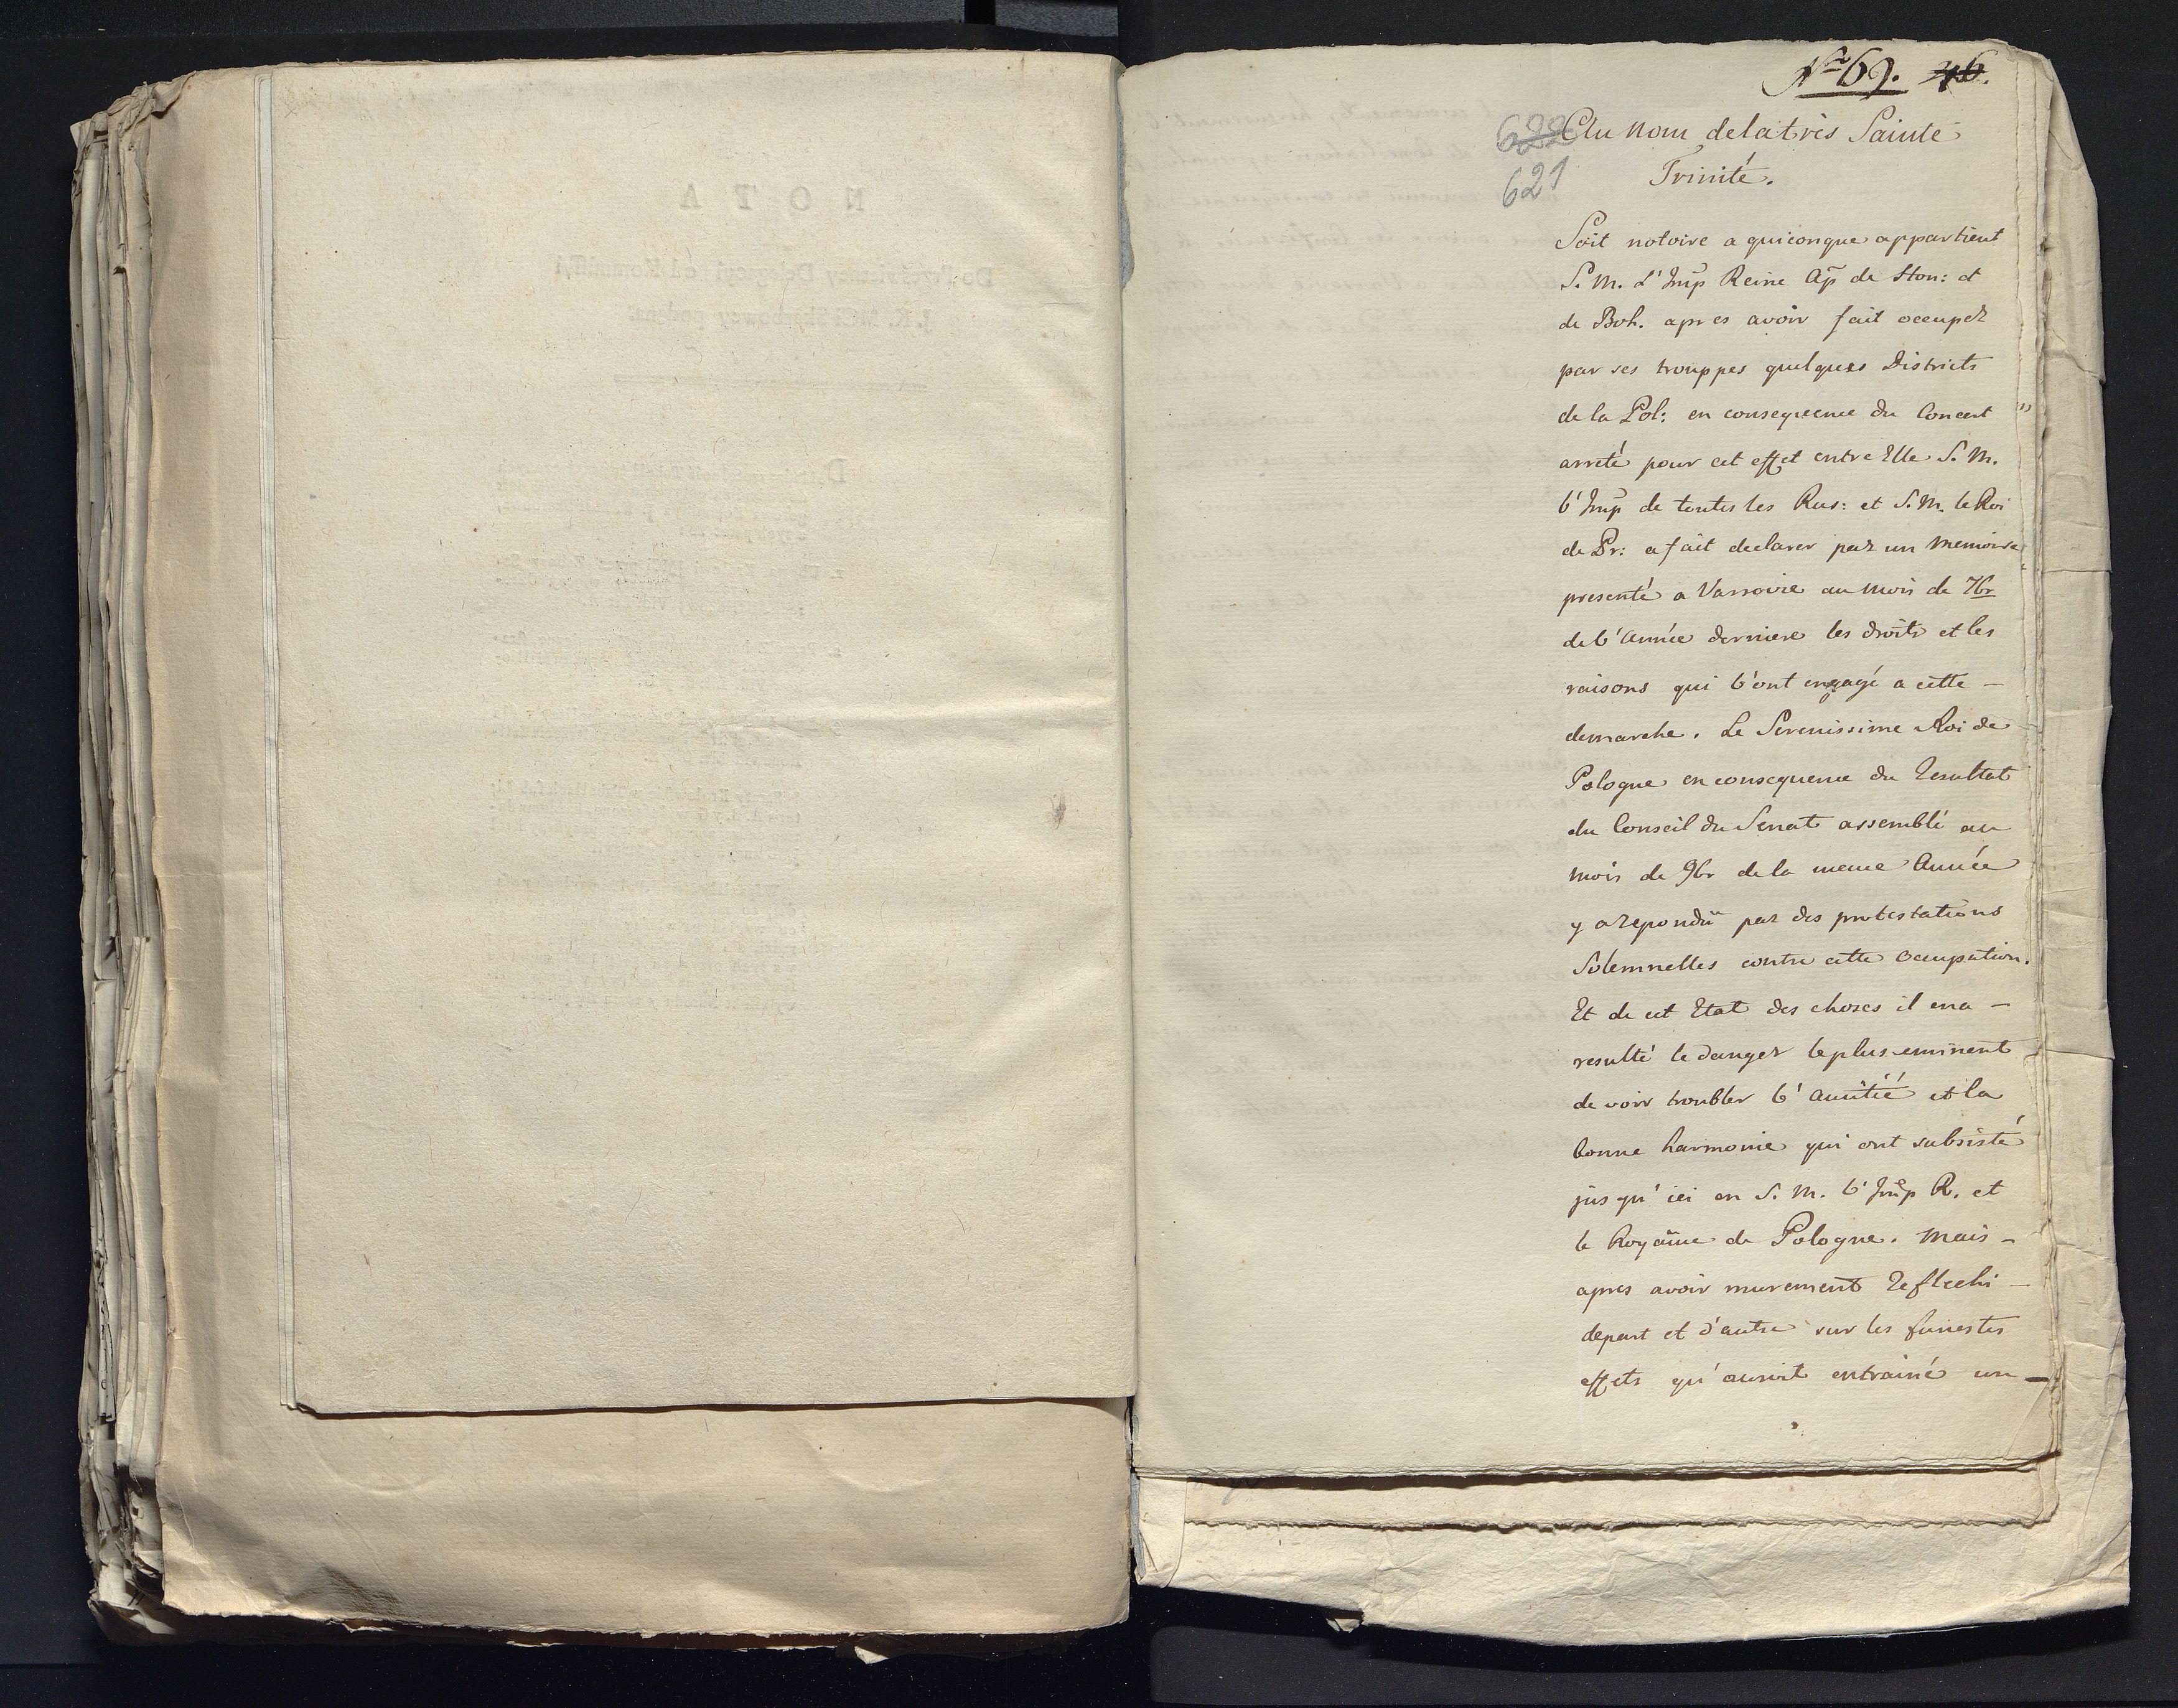 Nro 69. 46.
622
621
Au nom de la très Sainte
Trinité.
Soit notoire a quiconque appartient
S. M. L'Imp Reine Ap de Hon: et
de Boh. apres avoir fait occuper
par ses trouppes quelques Districts
de la Pol: en consequence du Concert
arreté pour cet effet entre Elle S. M.
l'Imp de toutes les Rus: et S. M. le Roi
de Pr: a fait declarer par un Memoire
presenté a Varsovie au mois de 7br
de l'Année derniere les droits et les
raisons qui l'ont engagé a cette –
demarche. Le Serenissime Roi de
Pologne en consequence du Resultat
du Conseil du Senat assemblé au
mois de 9br de la meme Année
y a repondü par des protestations
Solemnelles contre cette Occupation.
Et de cet Etat des choses il en a –
resulté le danger le plus eminent
de voir troubler l'amitié et la
bonne harmonie qui ont subsisté
jusqu'ici en S. M. l'Imp R. et
le Royaume de Pologne. Mais –
apres avoir murement Reflechi –
de part et d'autre sur les funestes
effets qu'auroit entrainé un –